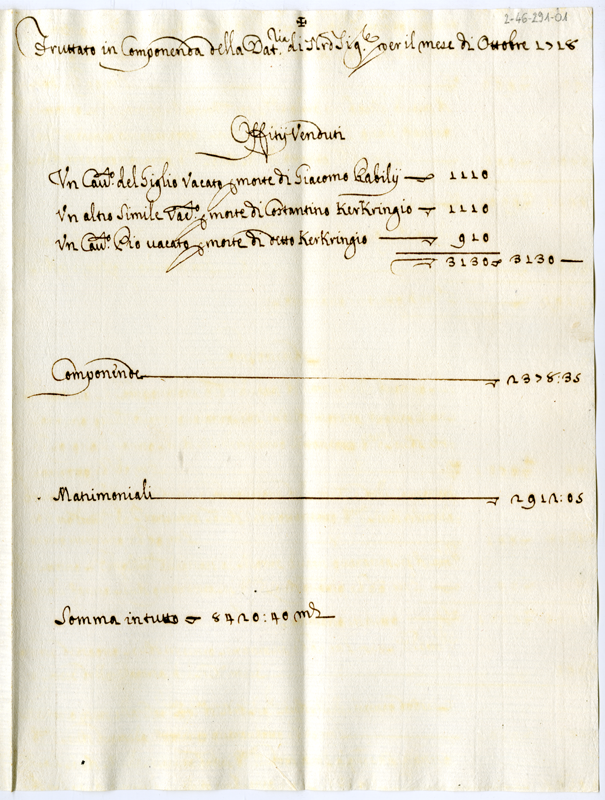 2-46-291-01
✠
Fruttato in Componenda della Dat.ria di Nrō Sig.re per il mese di Ottobre 1718
Offitij Venduti
Un Cau.to del Giglio Vacato p morte di Giacomo Babilij — 1110
Un altro simile Vac.to p morte di Costantino KerKringio — 1110
Un Cau.to Pio vacato p morte di detto KerKringio — 910
3130 3130 —
Componende — 2378:35
Matrimoniali — 2912:05
Somma in tutto — 8420:40 mta